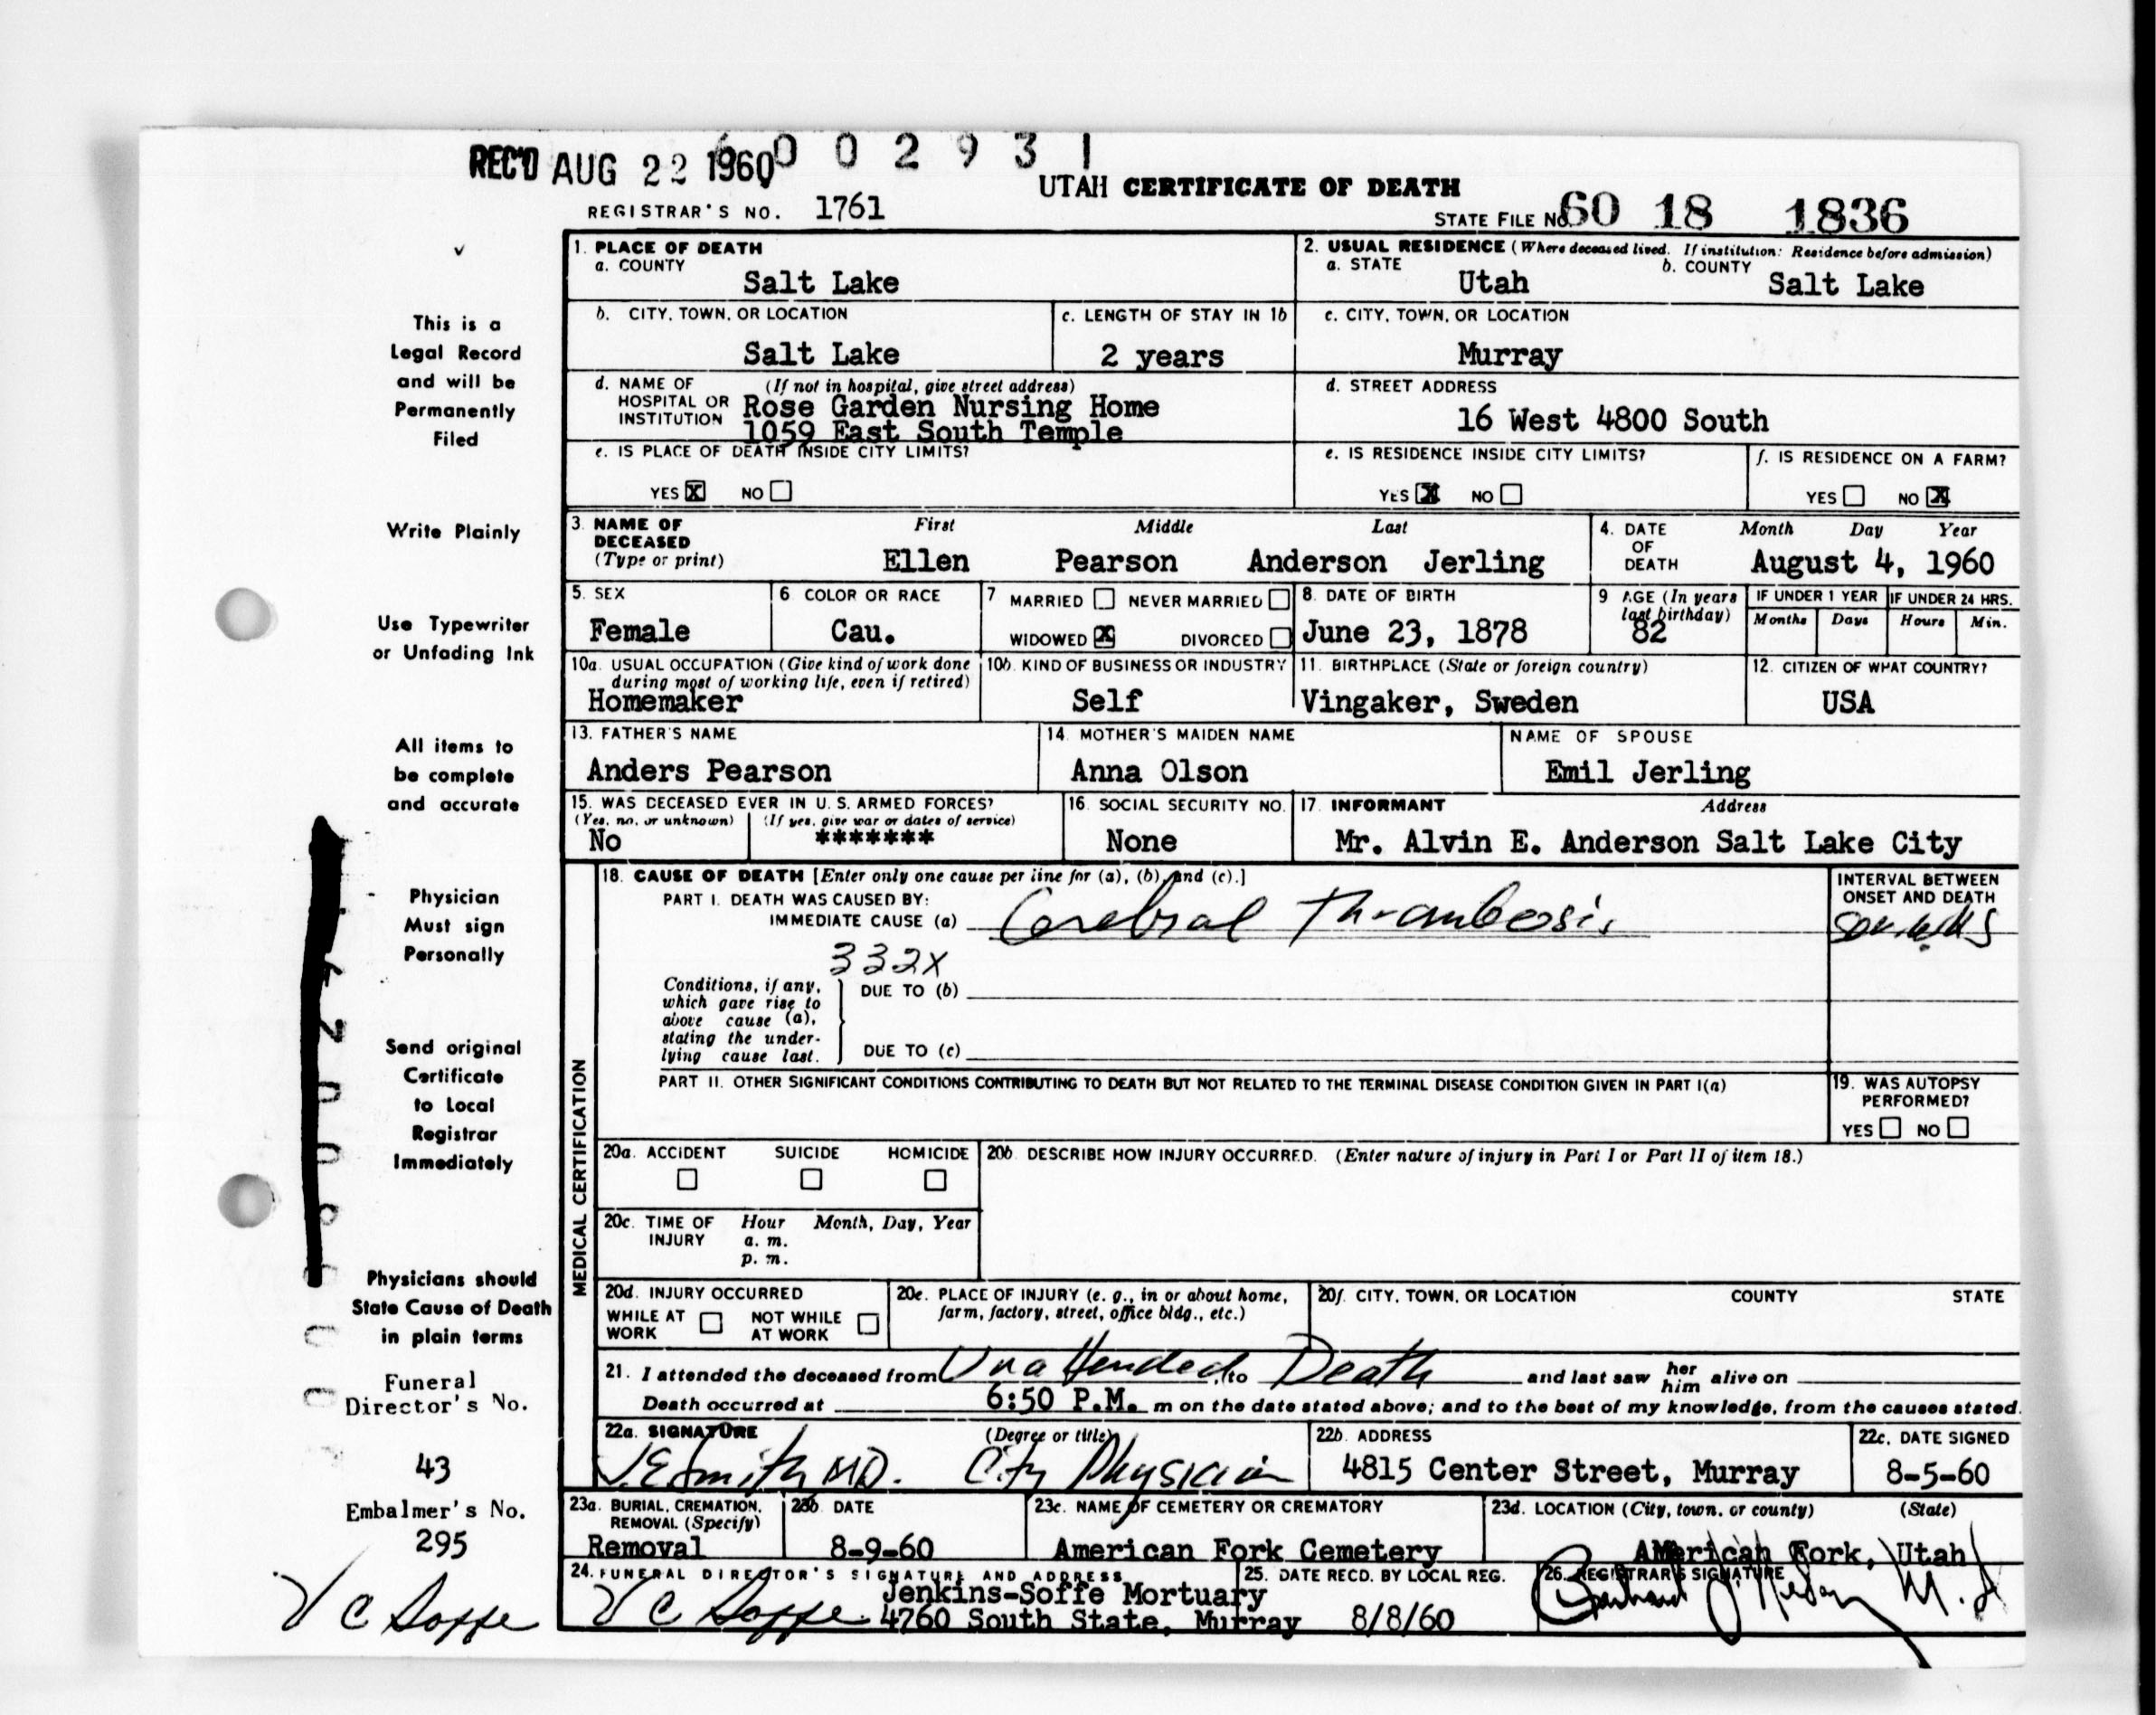 REC'D AUG 22 1960 0 0 2 9 3 1
UTAH CERTIFICATE OF DEATH
REGISTRAR'S NO. 1761
STATE FILE NO. 60 18 1836
1. PLACE OF DEATH
a. COUNTY
Salt Lake
2. USUAL RESIDENCE (Where deceased lived. If institution: Residence before admission)
a. STATE b. COUNTY
Utah Salt Lake
b. CITY, TOWN, OR LOCATION
Salt Lake
c. LENGTH OF STAY IN 1b
2 years
c. CITY, TOWN, OR LOCATION
Murray
d. NAME OF HOSPITAL OR INSTITUTION (If not in hospital, give street address)
Rose Garden Nursing Home
1059 East South Temple
d. STREET ADDRESS
16 West 4800 South
e. IS PLACE OF DEATH INSIDE CITY LIMITS?
YES X NO
e. IS RESIDENCE INSIDE CITY LIMITS?
YES X NO
f. IS RESIDENCE ON A FARM?
YES NO X
3. NAME OF DECEASED (Type or print)
First Middle Last
Ellen Pearson Anderson Jerling
4. DATE OF DEATH Month Day Year
August 4, 1960
5. SEX
Female
6 COLOR OR RACE
Cau.
7 MARRIED NEVER MARRIED
WIDOWED X DIVORCED
8. DATE OF BIRTH
June 23, 1878
9 AGE (In years last birthday)
82
IF UNDER 1 YEAR IF UNDER 24 HRS.
Months Days Hours Min.
10a. USUAL OCCUPATION (Give kind of work done during most of working life, even if retired)
Homemaker
10b. KIND OF BUSINESS OR INDUSTRY
Self
11. BIRTHPLACE (State or foreign country)
Vingaker, Sweden
12. CITIZEN OF WHAT COUNTRY?
USA
13. FATHER'S NAME
Anders Pearson
14. MOTHER'S MAIDEN NAME
Anna Olson
NAME OF SPOUSE
Emil Jerling
15. WAS DECEASED EVER IN U. S. ARMED FORCES?
(Yes, no, or unknown) (If yes, give war or dates of service)
No *******
16. SOCIAL SECURITY NO.
None
17. INFORMANT Address
Mr. Alvin E. Anderson Salt Lake City
MEDICAL CERTIFICATION
18. CAUSE OF DEATH [Enter only one cause per line for (a), (b), and (c).]
PART I. DEATH WAS CAUSED BY:
IMMEDIATE CAUSE (a) Cerebral Thrombosis
332X
INTERVAL BETWEEN ONSET AND DEATH
Conditions, if any, which gave rise to above cause (a), stating the underlying cause last.
DUE TO (b)
DUE TO (c)
PART II. OTHER SIGNIFICANT CONDITIONS CONTRIBUTING TO DEATH BUT NOT RELATED TO THE TERMINAL DISEASE CONDITION GIVEN IN PART I(a)
19. WAS AUTOPSY PERFORMED?
YES NO
20a. ACCIDENT SUICIDE HOMICIDE
20b. DESCRIBE HOW INJURY OCCURRED. (Enter nature of injury in Part I or Part II of item 18.)
20c. TIME OF INJURY Hour Month, Day, Year
a. m.
p. m.
20d. INJURY OCCURRED
WHILE AT WORK NOT WHILE AT WORK
20e. PLACE OF INJURY (e. g., in or about home, farm, factory, street, office bldg., etc.)
20f. CITY, TOWN, OR LOCATION COUNTY STATE
21. I attended the deceased from Unattended, to Death and last saw her him alive on
Death occurred at 6:50 P.M. m on the date stated above; and to the best of my knowledge, from the causes stated.
22a. SIGNATURE (Degree or title)
J E Smith MD. City Physician
22b. ADDRESS
4815 Center Street, Murray
22c. DATE SIGNED
8-5-60
23a. BURIAL, CREMATION, REMOVAL (Specify)
Removal
23b. DATE
8-9-60
23c. NAME OF CEMETERY OR CREMATORY
American Fork Cemetery
23d. LOCATION (City, town, or county) (State)
American Fork, Utah
24. FUNERAL DIRECTOR'S SIGNATURE AND ADDRESS
V C Soffe
Jenkins-Soffe Mortuary
4760 South State, Murray
25. DATE RECD. BY LOCAL REG.
8/8/60
26. REGISTRAR'S SIGNATURE
This is a
Legal Record
and will be
Permanently
Filed
Write Plainly
Use Typewriter
or Unfading Ink
All items to
be complete
and accurate
Physician
Must sign
Personally
Send original
Certificate
to Local
Registrar
Immediately
Physicians should
State Cause of Death
in plain terms
Funeral
Director's No.
43
Embalmer's No.
295
V C Soffe